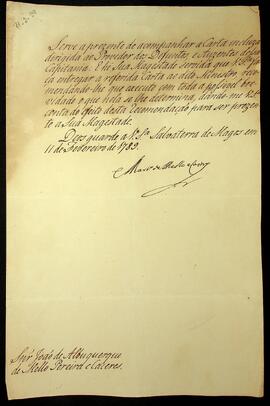 Serve a prezente de acompanhar a Carta incluza
dirigida ao Provedor dos Defuntos, e Auzentes dessa
Capitania. E ha Sua Magestade servida que V. S.ª fa
ça entregar a referida Carta ao dito Ministro reco
mendando-lhe que execute com toda a possivel bre
vidade o que nela se lhe determina, dando-me V. S.ª
conta do efeito desta Recomendação para ser prezen
te a Sua Magestade.
Deos guarde a V. S.ª Salvaterra de Magos em
11 de Fevereiro de 1789.
Martº de Mello e Castro
Snr. João de Albuquerque
de Mello Pereira e Caceres.